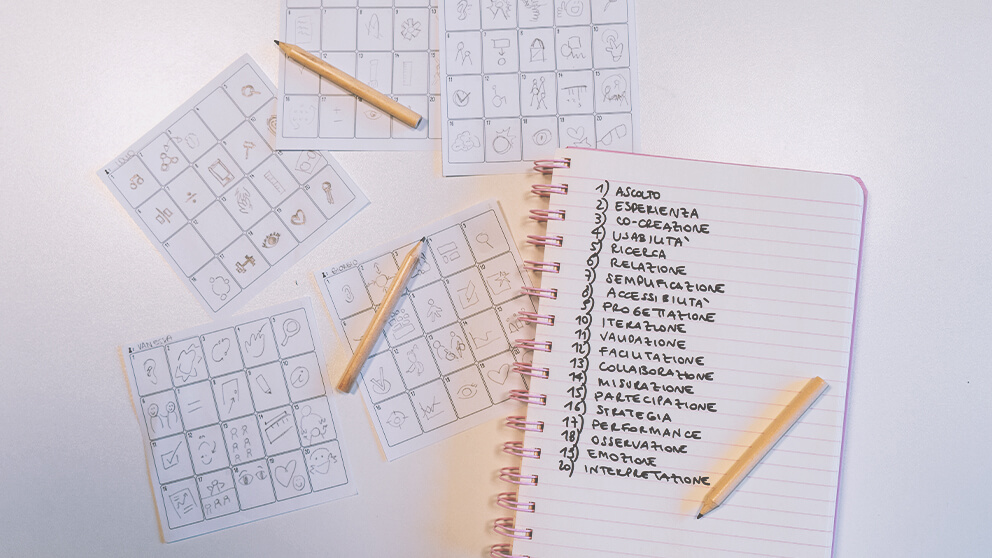 1) ASCOLTO
2) ESPERIENZA
3) CO-CREAZIONE
4) USABILITA'
5) RICERCA
6) RELAZIONE
7) SEMPLIFICAZIONE
8) ACCESSIBILITA'
9) PROGETTAZIONE
10) ITERAZIONE
11) VALIDAZIONE
12) FACILITAZIONE
13) COLLABORAZIONE
14) MISURAZIONE
15) PARTECIPAZIONE
16) STRATEGIA
17) PERFORMANCE
18) OSSERVAZIONE
19) EMOZIONE
20) INTERPRETAZIONE